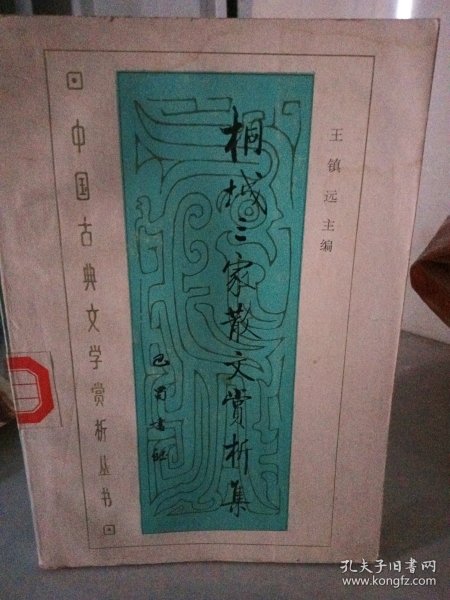 王镇远主编
桐城三家散文赏析集
巴蜀书社
中国古典文学赏析丛书
孔夫子旧书网
www.kongfz.com